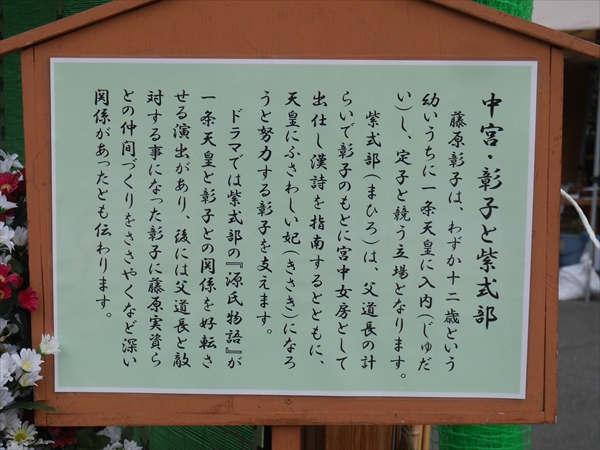 中宮・彰子と紫式部
藤原彰子は、わずか十二歳という
幼いうちに一条天皇に入内(じゅだ
い)し、定子と競う立場となります。
紫式部(まひろ)は、父道長の計
らいで彰子のもとに宮中女房として
出仕し漢詩を指南するとともに、
天皇にふさわしい妃(きさき)になろ
うと努力する彰子を支えます。
ドラマでは紫式部の『源氏物語』が
一条天皇と彰子との関係を好転さ
せる演出があり、後には父道長と敵
対する事になった彰子に藤原実資ら
との仲間づくりをささやくなど深い
関係があったとも伝わります。